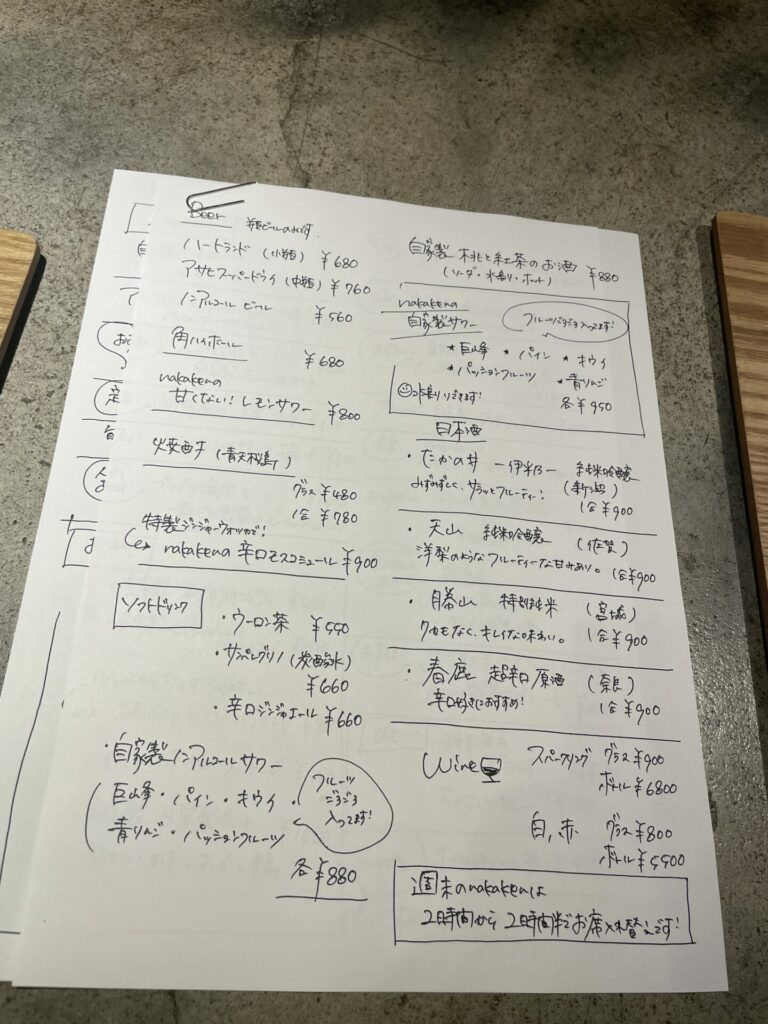 Beer
ハートランド (小瓶) ¥680
アサヒスーパードライ (中瓶) ¥760
ノンアルコール ビール ¥560
角ハイボール ¥680
nakakena
甘くない! レモンサワー ¥800
火焼西芋 (青天桜島)
グラス ¥480
1合 ¥780
特製ジンジャーウォッカで!
nakakena 辛口モスコミュール ¥900
ソフトドリンク
・ウーロン茶 ¥550
・サンペレグリノ (炭酸水)
¥660
・辛口ジンジャエール ¥660
・自家製ノンアルコールサワー
巨峰・パイン・キウイ・
青りんご・パッションフルーツ
フルーツ
ごろごろ
入ってます!
各¥880
自家製 桃と紅茶のお酒 ¥880
(ソーダ・水割り・ホット)
nakakena
自家製サワー
フルーツごろごろ入ってます!
★巨峰 ★パイン ★キウイ
★パッションフルーツ ★青りんご
水割りできます!
各¥950
日本酒
・たかの井 -伊乎乃- 純米吟醸
みずみずしく、サラッとフルーティー! (新潟)
1合¥900
・天山 純米吟醸 (佐賀)
洋梨のようなフルーティーな甘みあり。 1合¥900
・勝山 特別純米 (宮城)
クセもなく、キレイな味わい。 1合¥900
・春鹿 超辛口 原酒 (奈良)
辛口好きにおすすめ! 1合¥900
Wine
スパークリング グラス¥900
ボトル¥6800
白,赤 グラス¥800
ボトル¥5500
週末のnakakenaは
2時間から2時間半でお席入れ替えです!